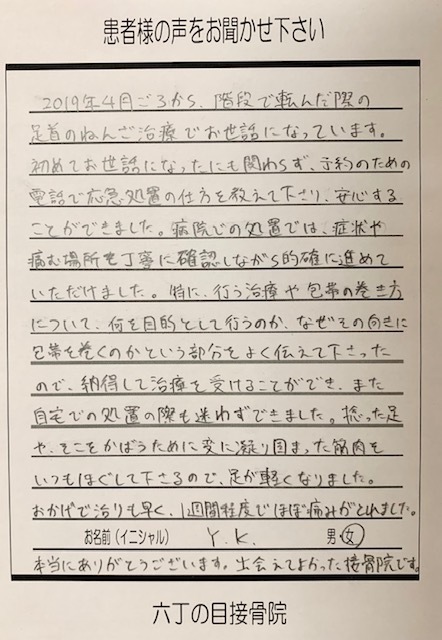 患者様の声をお聞かせ下さい
2019年4月ごろから、階段で転んだ際の
足首のねんざ治療でお世話になっています。
初めてお世話になったにも関わらず、予約のための
電話で応急処置の仕方を教えて下さり、安心する
ことができました。病院での処置では、症状や
痛む場所を丁寧に確認しながら的確に進めて
いただけました。特に、行う治療や包帯の巻き方
について、何を目的として行うのか、なぜその向きに
包帯を巻くのかという部分をよく伝えて下さった
ので、納得して治療を受けることができ、また
自宅での処置の際も迷わずできました。捻った足
や、そこをかばうために変に凝り固まった筋肉を
いつもほぐして下さるので、足が軽くなりました。
おかげで治りも早く、1週間程度でほぼ痛みがとれました。
お名前(イニシャル) Y.K. 男・女
本当にありがとうございます。出会えてよかった接骨院です。
六丁の目接骨院